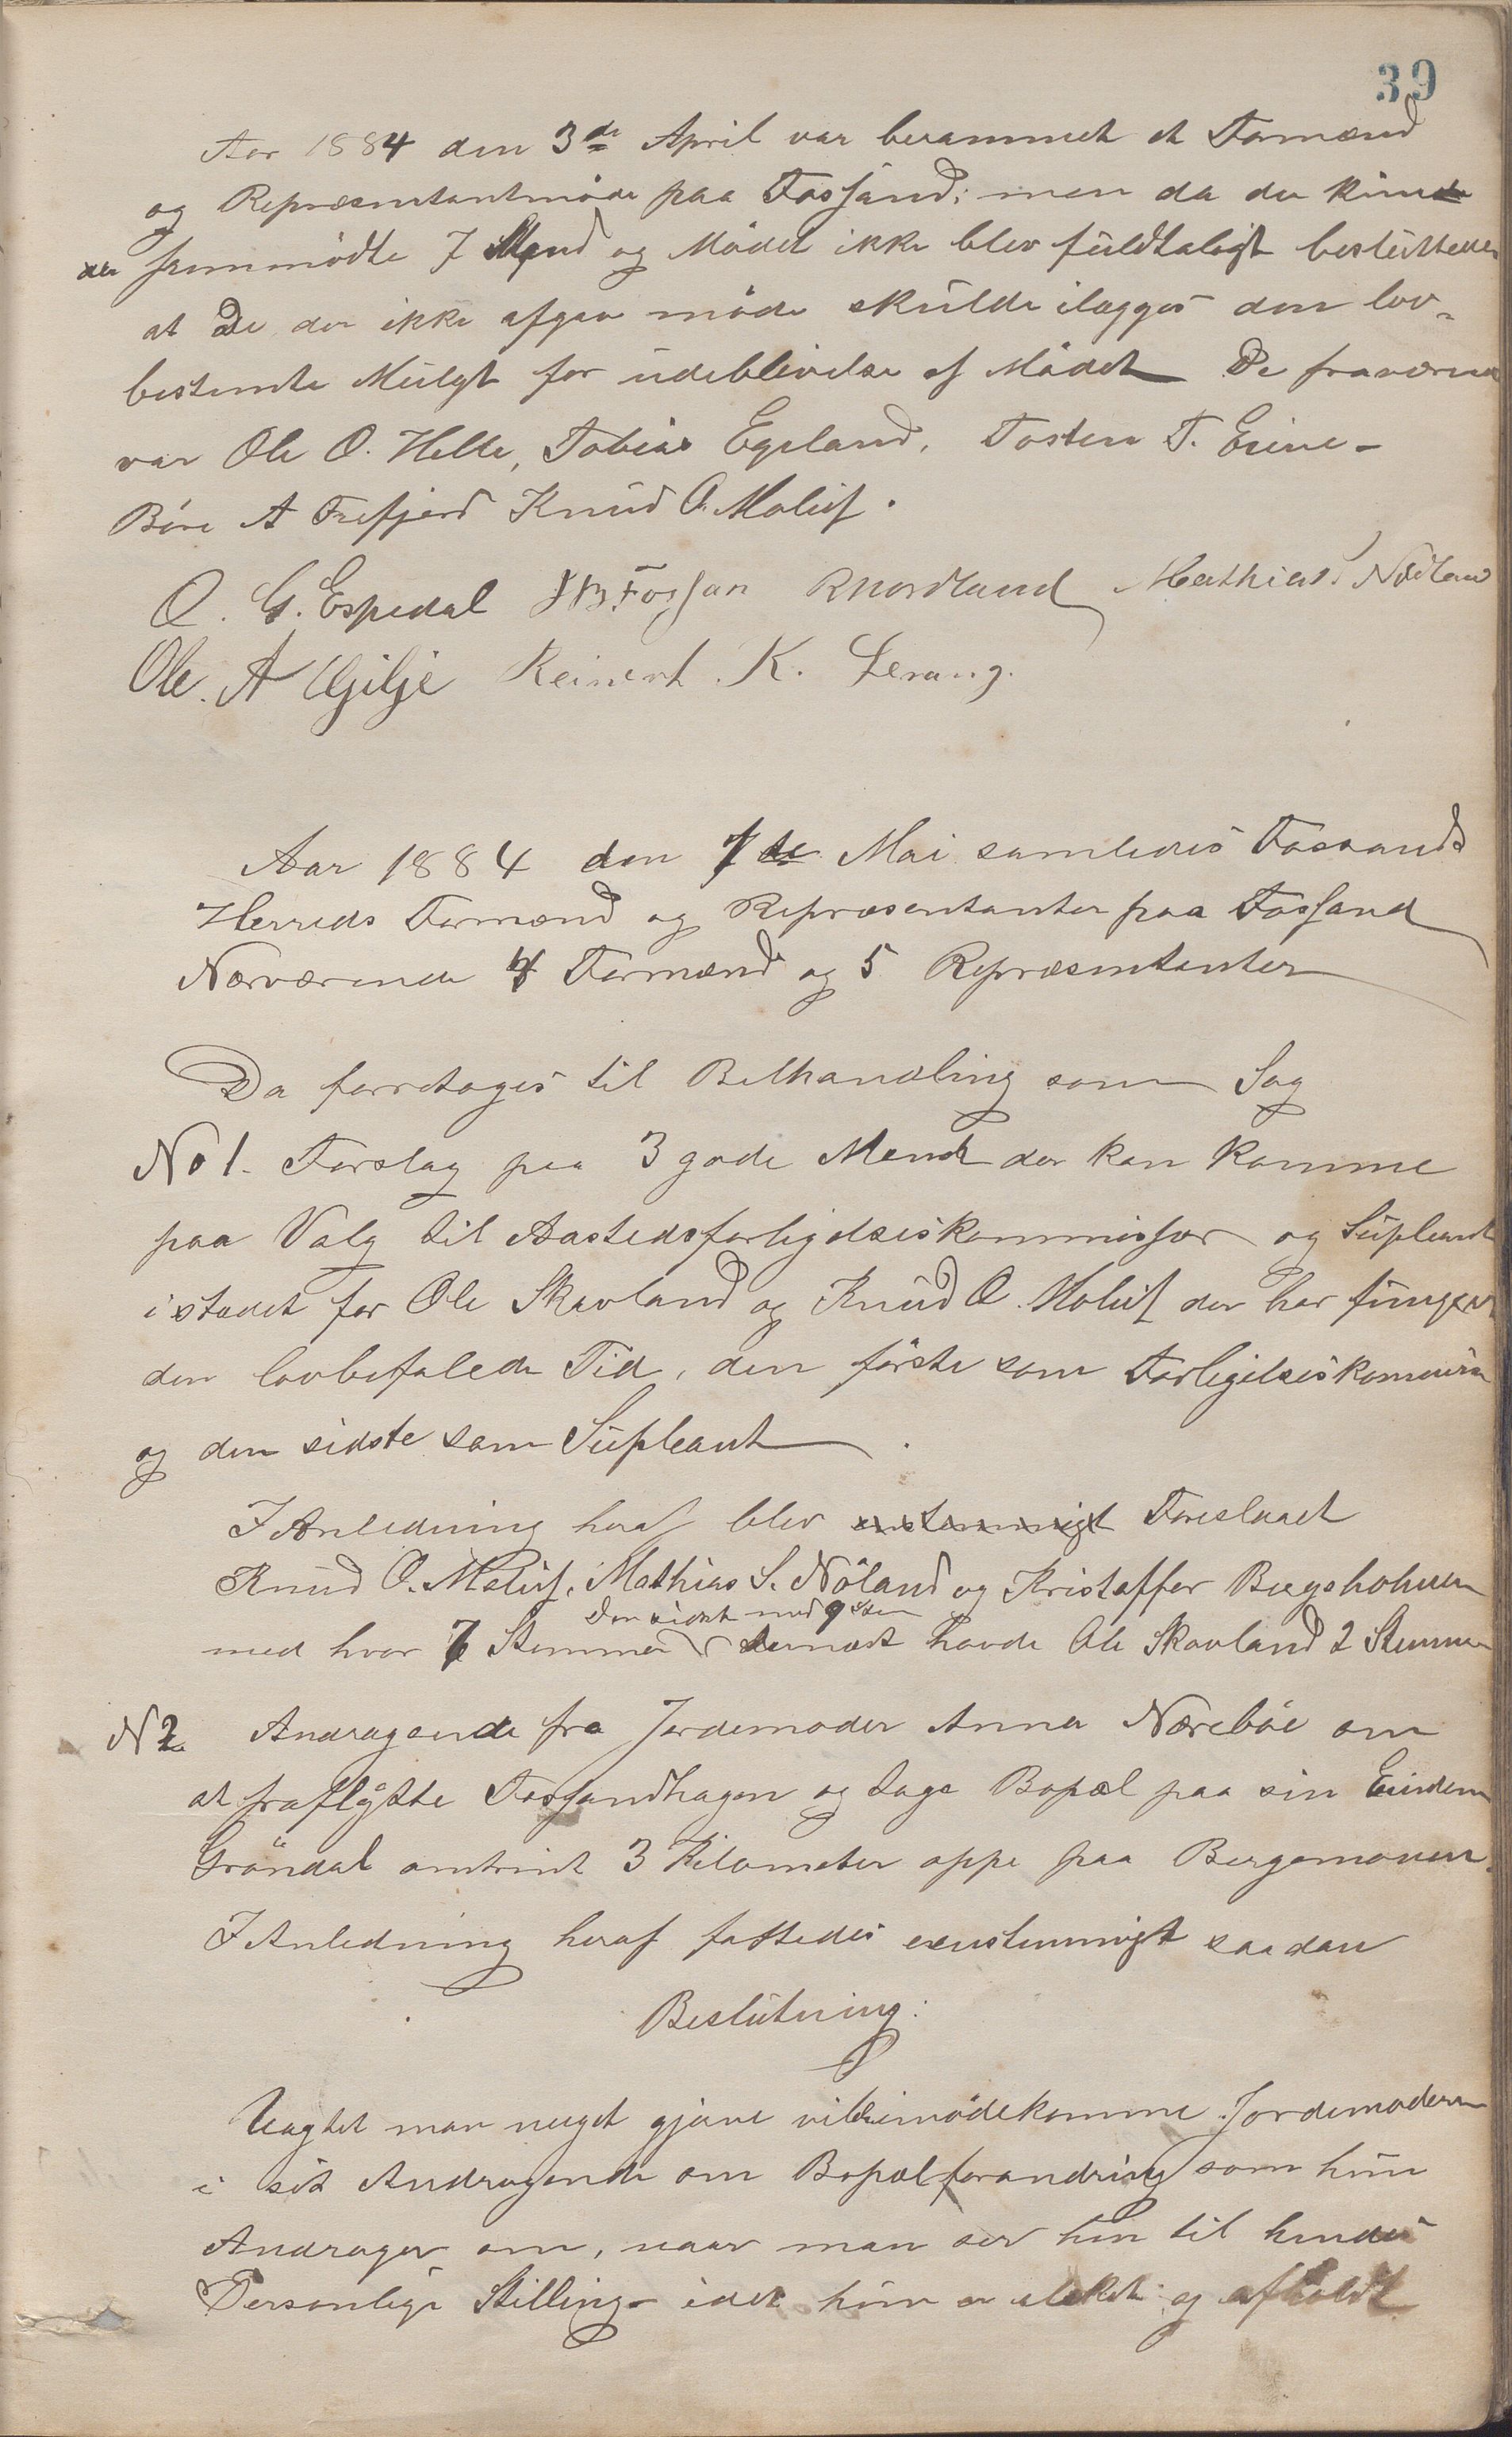 39
Aar 1884 den 3de April var berammet et Formænd
og Repræsentantmøde paa Fossand; men da der kun
der fremmødte 7 Mænd og Mødet ikke blev fuldtaligt besluttedes
at De der ikke afgav møde skulde ilægges den lov-
bestemte Mulgt for udeblivelse af Mødet De fraværende
var Ole O. Helle, Tobias Egeland, Tosten T. Eiene-
Børe A Frafjord Knud O. Meling.
O. G. Espedal Fossan R Nordland Mathias S. Nødland
Ole. A Gilje Reinert. K. Lerang.
Aar 1884 den 7de Mai samledes Fossands
Herreds Formænd og Repræsentanter paa Fossand
Nærværende 4 Formænd og 5 Repræsentanter
Da forretoges til Bethandling som Sag
No 1. Forslag paa 3 gode Mend der kan komme
paa Valg til Aastedsforligelseskommissær og Supleant
i stedet for Ole Skavland og Knud O. der har fungeret
den lovbefalede Tid, den første som Forligelseskommisær
og den sidste som Supleant.
I Anledning heraf blev enstemmigt Foreslaaet
Knud O. Mathias S. Nøland og Kristoffer Bergeholmen
den sidste med 9 Stem
med hver 7 Stemmer dernæst havde Ole Skavland 2 Stemmer
N 2 Andragende fra Jordemoder Anna Nærebøe om
at fraflytte Fossandhagen og tage Bopæl paa sin Eiendom
Grøndal omtrint 3 Kilometer oppe paa Bergemouen.
I Anledning heraf fattedes eenstemmigt saadan
Beslutning:
Uagtet man meget gjerne vil imødekomme Jordemoderen
i sit Andragende om Bopælforandring som hun
Andrager om, naar man ser hen til hendes
Personlige Stilling - idet hun er elsket og afholdt